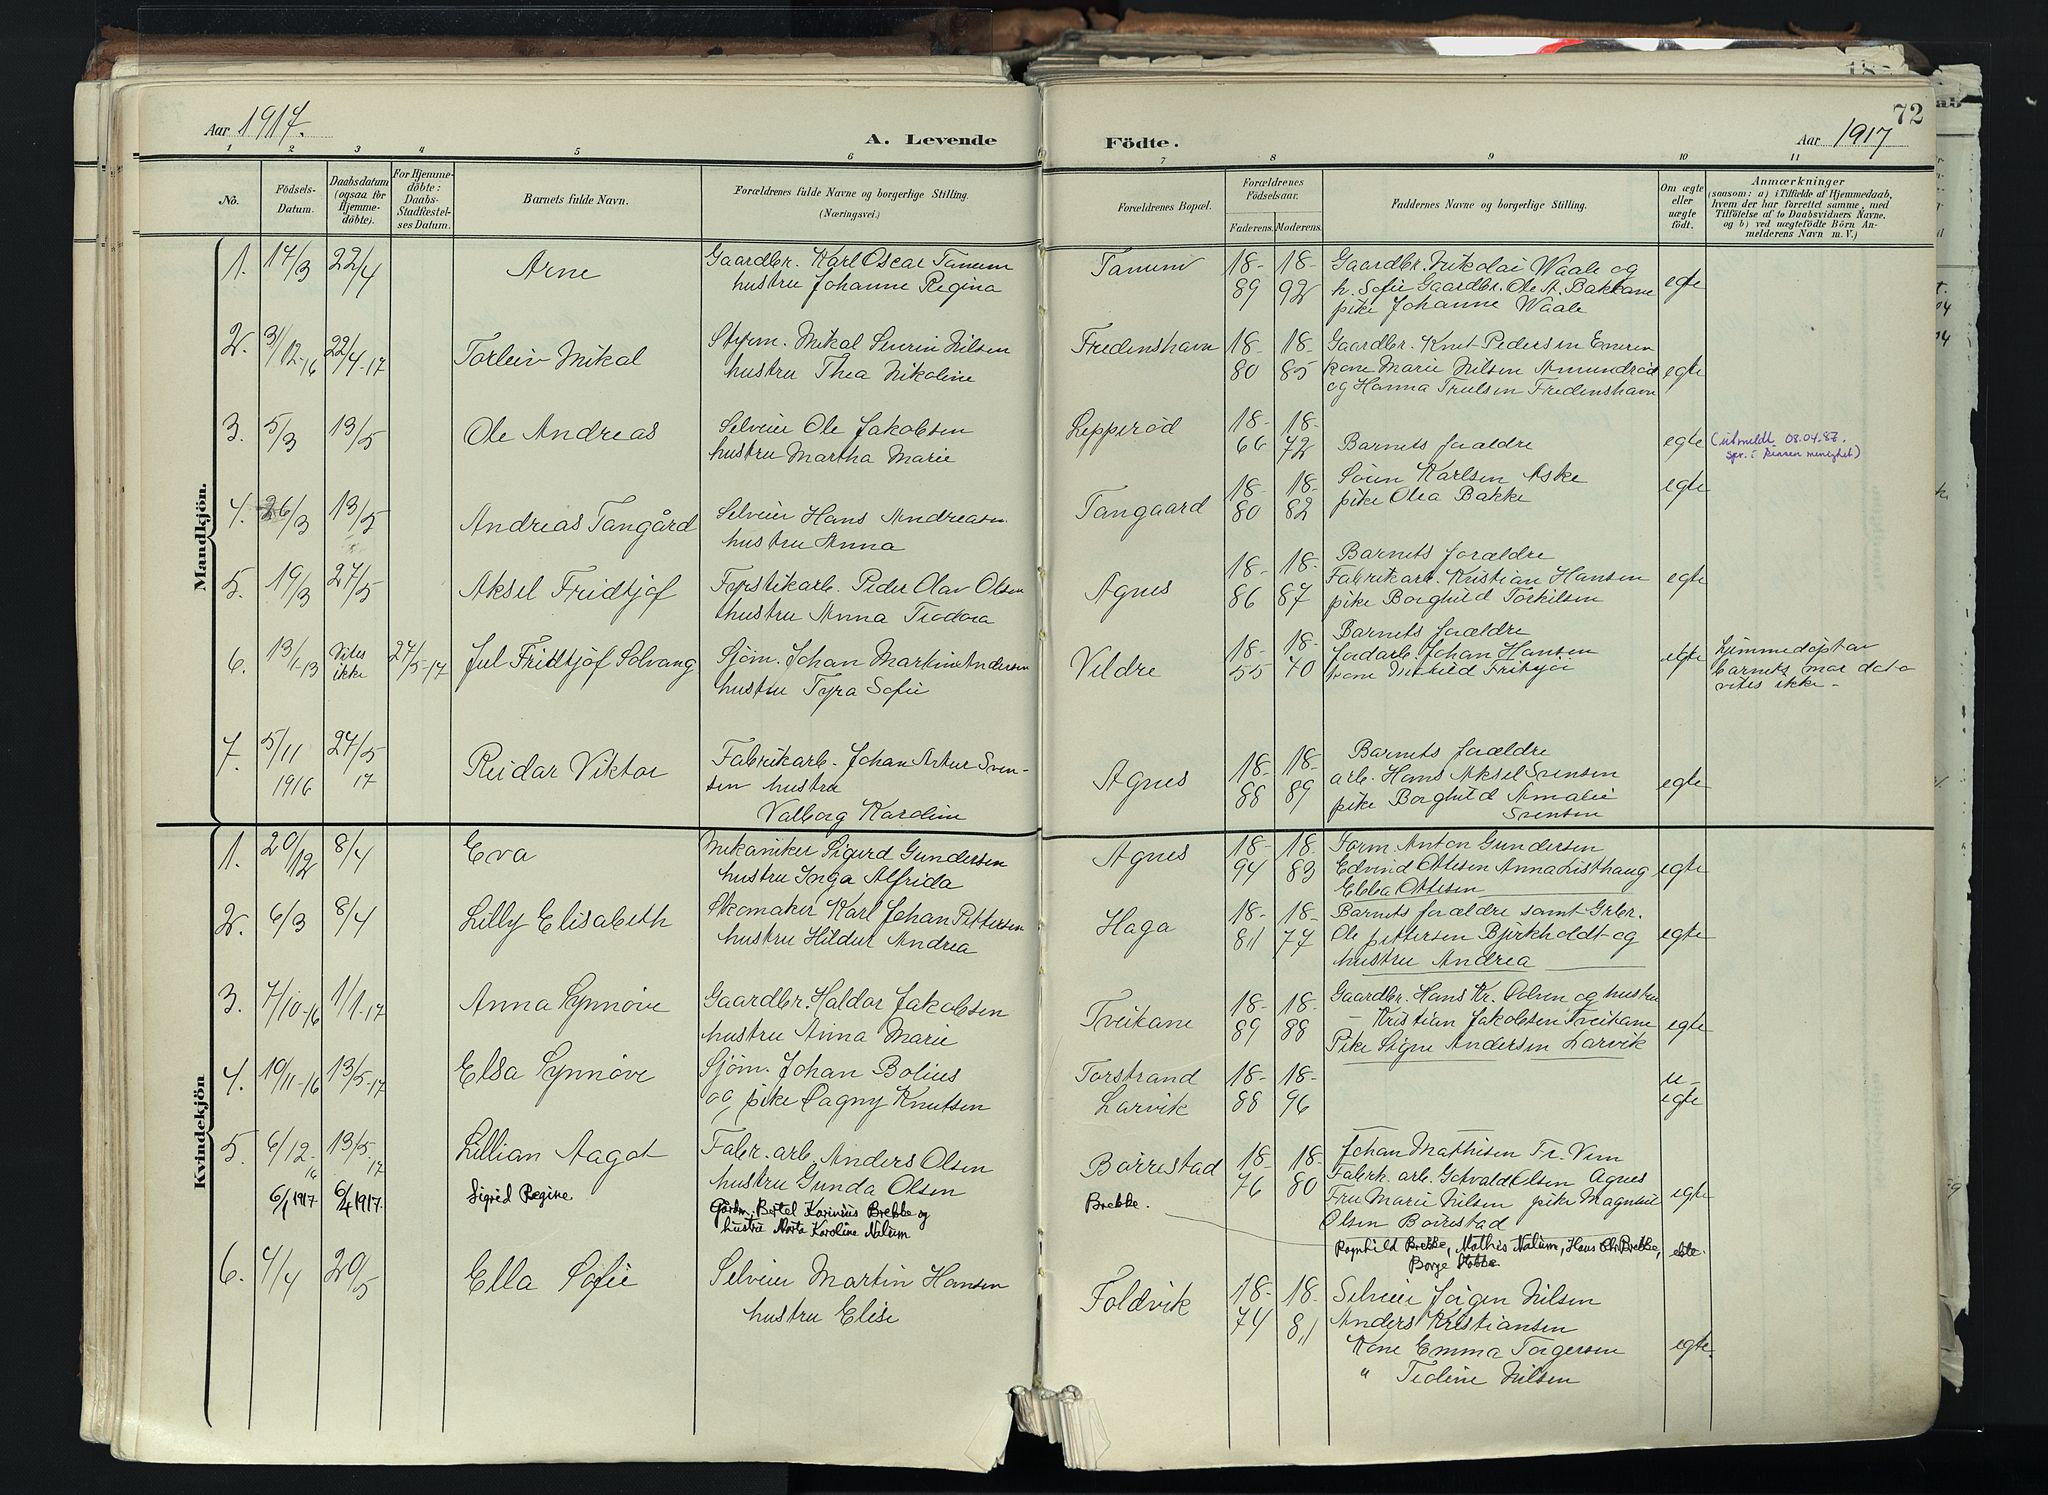 Aar 1917.
A. Levende
Födte.
72
Aar 1917
1 2 3 4 5 6 7 8 9 10 11
No.
Födsels-Datum.
Daabsdatum (ogsaa for Hjemme-döbte).
For Hjemme-döbte: Daabs-Stadfæstel-ses Datum.
Barnets fulde Navn.
Forældrenes fulde Navne og borgerlige Stilling.
(Næringsvei.)
Forældrenes Bopæl.
Forældrenes Födselsaar.
Faderens. Moderens.
Faddernes Navne og borgerlige Stilling.
Om ægte eller uægte födt.
Anmærkninger
(saasom: a) i Tilfælde af Hjemmedaab,
hvem der har forrettet samme, med
Tilföielse af to Daabsvidners Navne.
og b) ved uægtefödte Börn An-
melderens Navn m. V.)
Mandkjön.
1. 17/3 22/4 Arne
Gaardbr. Karl Oscar Tanum
hustru Johanne Regina
Tanum 18-89 18-92
Gaardbr. Nikolai Waale og
h. Sofie Gaardbr. Ole A. Bakkane
pike Johanne Waale
egte
2. 3/12-16 22/4-17 Torleiv Mikal
Styrm. Mikal Severin Nilsen
hustru Thea Nikoline
Fredenshavn 18-80 18-85
Gaardbr. Knut Pedersen
kone Marie Nilsen Amundrød
og Hanna Trulsen Fredenshavn
egte
3. 5/3 13/5 Ole Andreas
Selveier Ole Jakobsen
hustru Martha Marie
Lepperød 18-66 18-72
Barnets forældre
egte
(utmeldt 08.04.87.
menighet)
4. 26/3 13/5 Andreas Tangård
Selveier Hans Andreasen
hustru Anna
Tangaard 18-80 18-82
Søren Karlsen Aske
pike Olea Bakke
egte
5. 19/3 27/5 Aksel Fridtjof
Fyrstikarb. Peder Olav Olsen
hustru Anna Teodora
Agnes 18-86 18-87
Barnets forældre
Fabrikarb. Kristian Hansen
pike Borghild Torkilsen
egte
6. 13/1-13 Vites ikke 27/5-17 Jul Fridtjof Solvang
Sjøm. Johan Martin Andersen
hustru Tyra Sofie
Vildre 18-55 18-70
Barnets forældre
Jordarb. Johan Hansen
kone
egte
hjemmedøpt av
barnets mor dato
vites ikke -
7. 5/11 1916 27/5 17 Reidar Viktor
Fabrikarb. Johan Artur Sven-
sen hustru
Valborg Karoline
Agnes 18-88 18-89
Barnets forældre
arb. Hans Aksel Svensen
pike Borghild Amalie
Svensen
egte
Kvindekjön
1. 20/12 8/4 Eva
Mekaniker Sigurd Gundersen
hustru Inga Alfrida
Agnes 18-94 18 83
Form. Anton Gundersen
Edvind Ottesen Anna Listhaug
Ebba Ottesen
egte
2. 6/3 8/4 Lilly Elisabeth
Skomaker Karl Johan Pettersen
hustru Hildur Andrea
Haga 18-81 18-77
Barnets forældre samt Grbr.
Ole Pettersen Bjerkholdt og
hustru Andrea
egte
3. 7/10-16 1/1-17 Anna Synnøve
Gaardbr. Haldor Jakobsen
hustru Anna Marie
Tveitane 18-89 18-88
Gaardbr. Hans Kr. Odven og hustru
- Kristian Jakobsen Tveitane
Pike Signe Andersen Larvik
egte
4. 19/11-16 13/5-17 Elsa Synnøve
Sjøm. Johan Bolius
og pike Dagny Knutsen
Torstrand
Larvik 18-88 18-96
u-
egte
5. 6/12-16 13/5-17 Lillian Aagot
Fabr. arb. Anders Olsen
hustru Gunda Olsen
Barrestad 18-76 18-80
Johan Mathisen Fr. Vern
Fabrk. arb. Gotvald Olsen Agnes
Fru Marie Nilsen pike Magnhil
Olsen Barrestad
egte
6/1 1917 6/4 1917. Sigrid Regine
Gårdm. Bertel Karinius Brekke og
hustru Marta Karoline Nalum
Brekke.
Ragnhild Brekke, Mathis Nalum, Hans Chr. Brekke,
Borge
ekte.
6. 4/4 20/5 Ella Sofie
Selveier Martin Hansen
hustru Elise
Foldvik 18-74 18-81
Selveier Jørgen Nilsen
Anders Kristiansen
Kone Emma Torgersen
" Tedine Nilsen
egte.